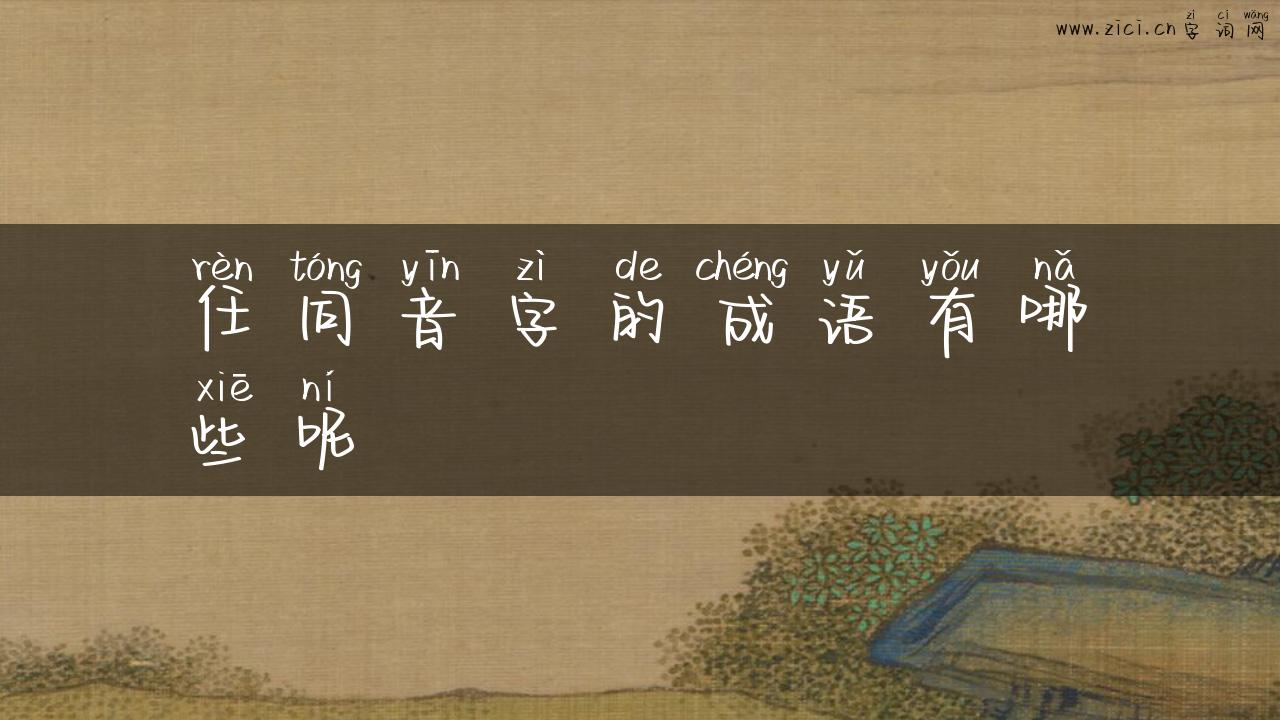 zì cí wǎng
www.zici.cn 字 词 网
rèn tóng yīn zì de chéng yǔ yǒu nǎ
任 同 音 字 的 成 语 有 哪
xiē ní
些 呢